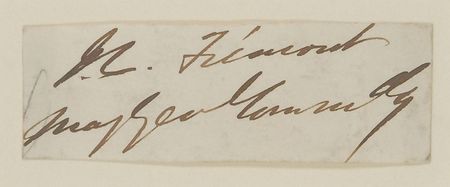 J. C. Frémont
Maj Genl Commdg